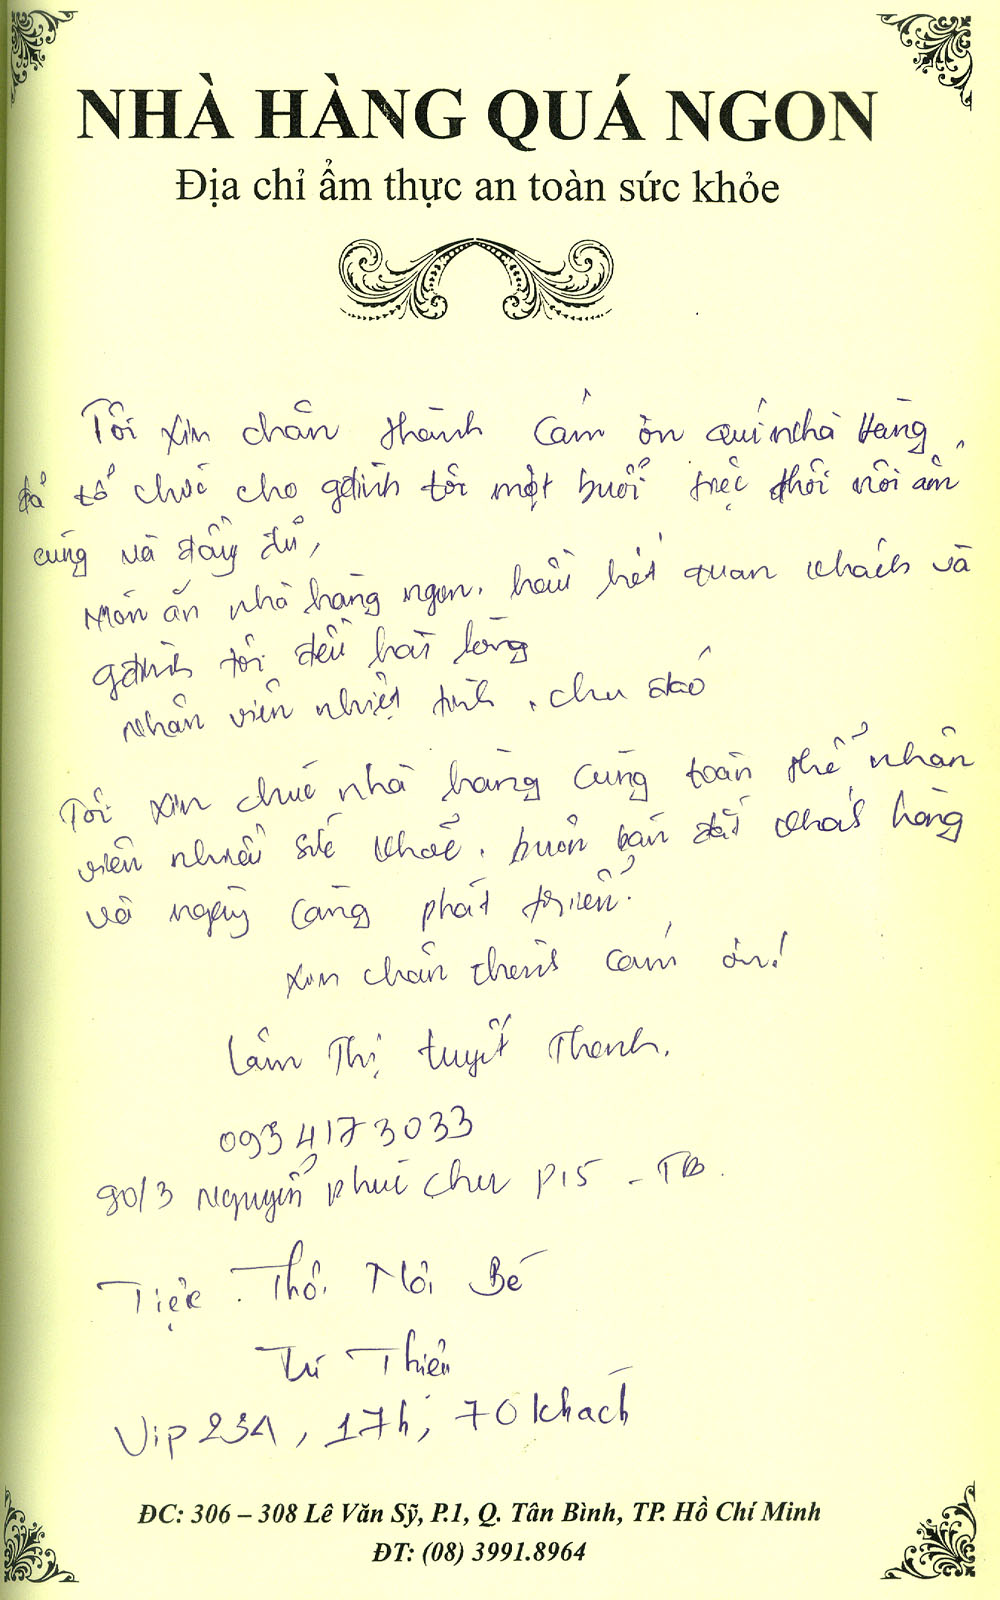 NHÀ HÀNG QUÁ NGON
Địa chỉ ẩm thực an toàn sức khỏe
Tôi xin chân thành cám ơn quí nhà hàng
đả tổ chức cho gđình tôi một buổi tiệc thôi nôi ấm
cúng và đầy đủ,
Món ăn nhà hàng ngon, hầu hết quan khách và
gđình tôi đều hài lòng
Nhân viên nhiệt tình, chu đáo
Tôi xin chúc nhà hàng cùng toàn thể nhân
viên nhiều sức khoẻ, buôn bán đắt khách hàng
và ngày càng phát triển.
Xin chân thành cám ơn!
Lâm Thị Tuyết Thanh.
0934173033
90/3 Nguyễn Phúc Chu P15 - TB.
Tiệc Thôi Nôi Bé
Tú Thiên
Vip 23A, 17h, 70 khách
ĐC: 306 – 308 Lê Văn Sỹ, P.1, Q. Tân Bình, TP. Hồ Chí Minh
ĐT: (08) 3991.8964